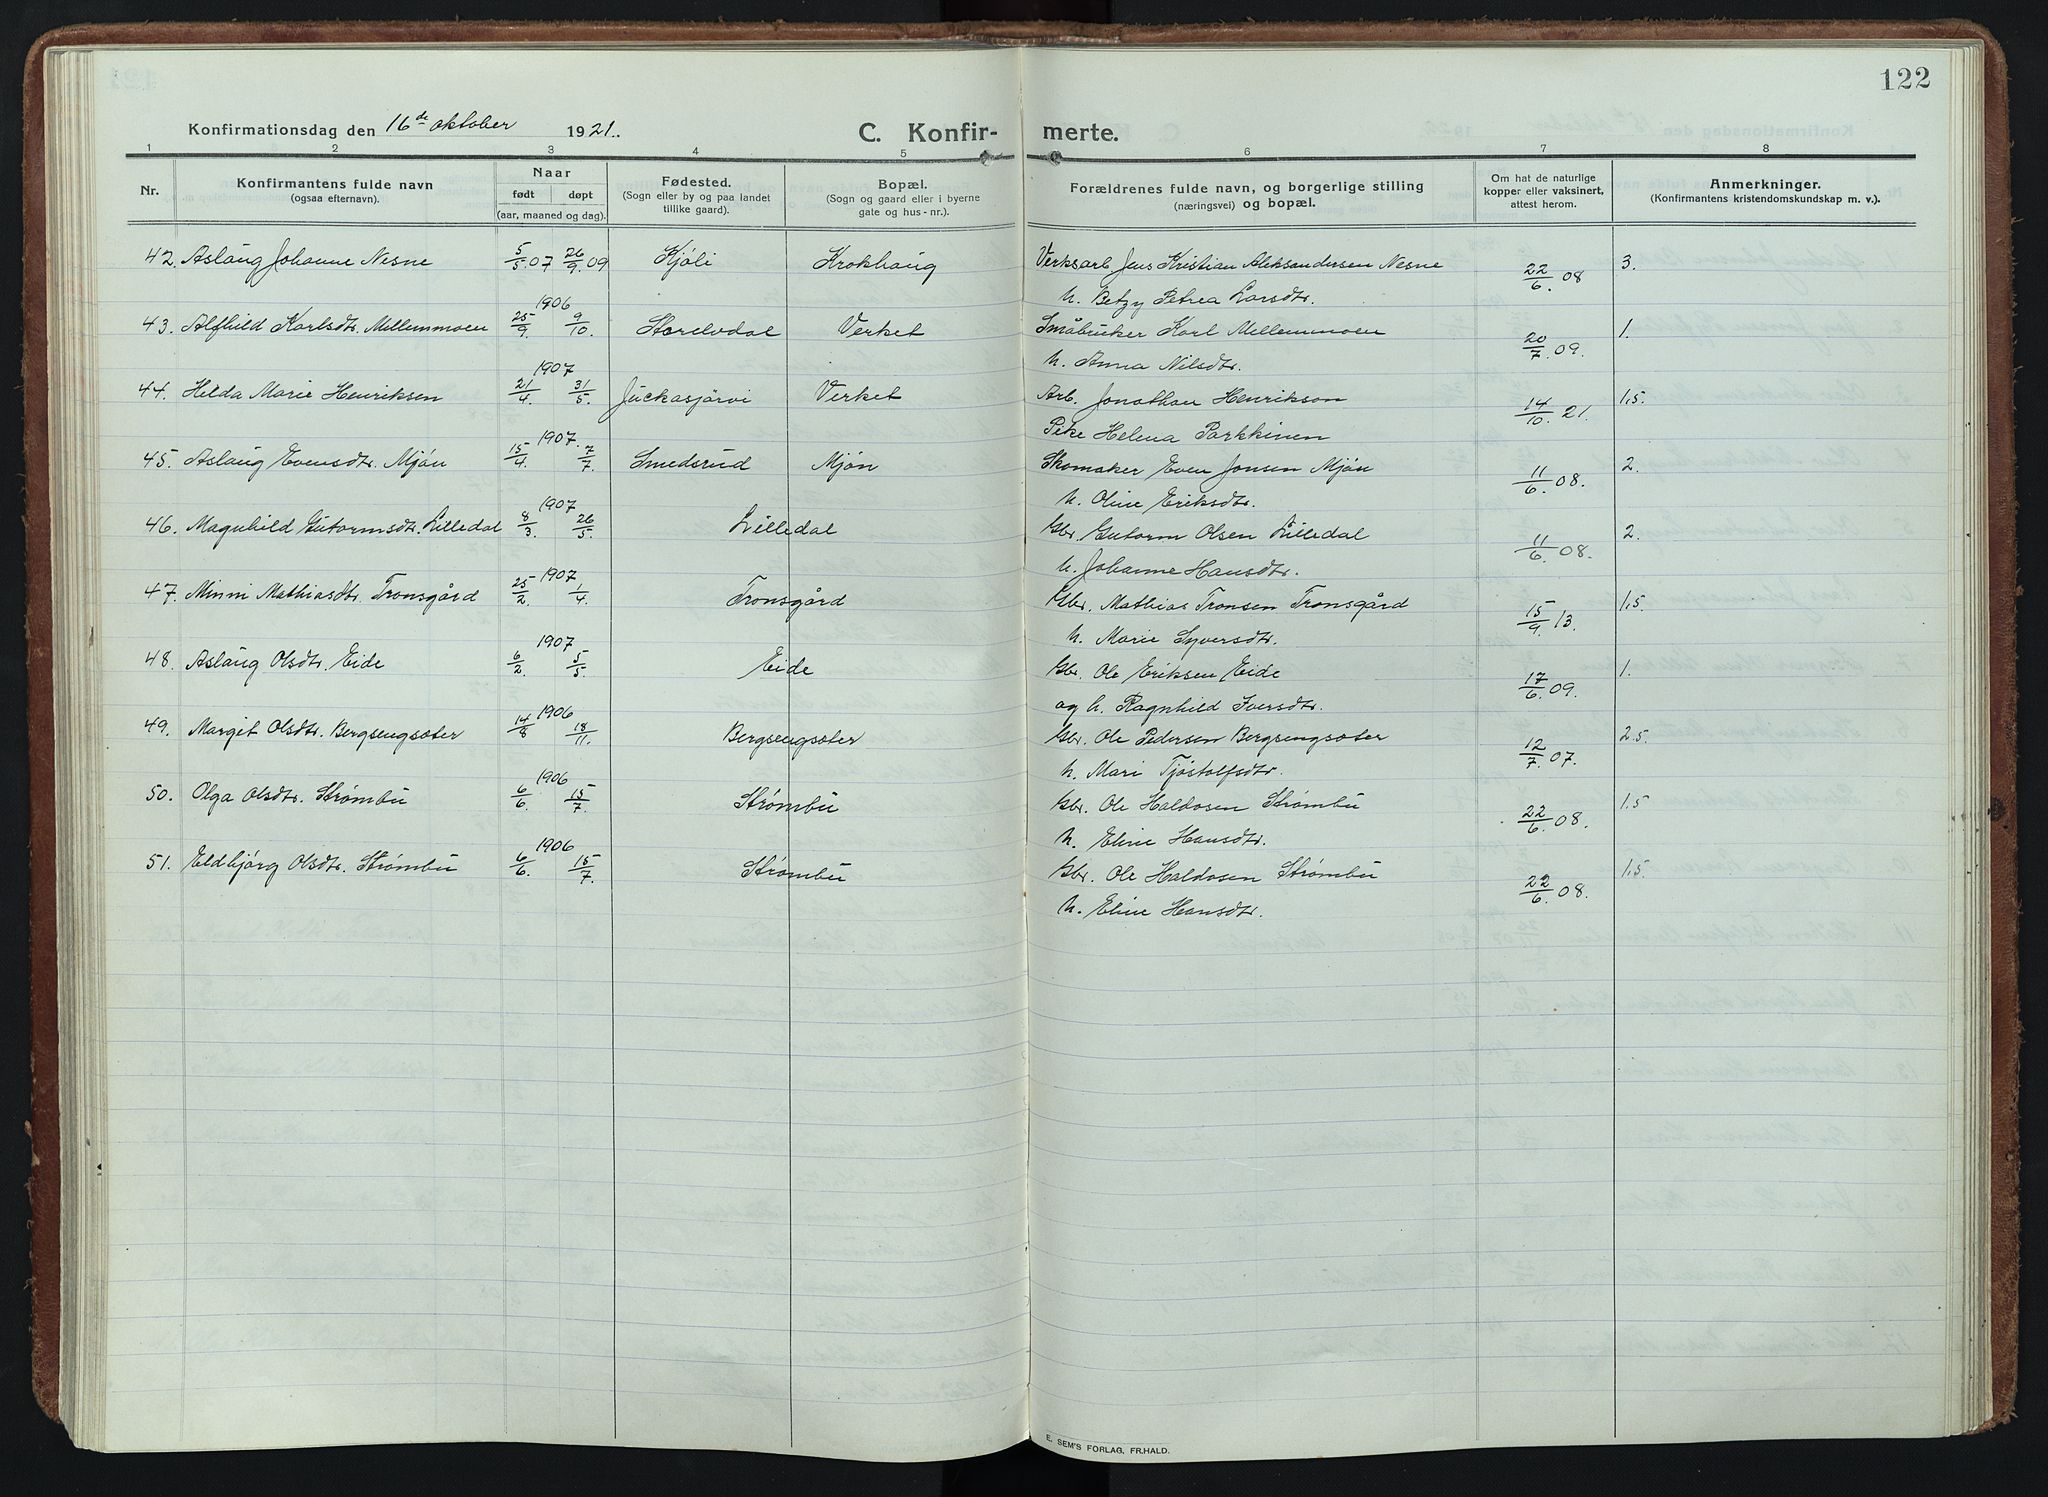 122
Konfirmationsdag den 16de oktober 1921.
C. Konfir-merte.
1 2 3 4 5 6 7 8
Nr.
Konfirmantens fulde navn
(ogsaa efternavn).
Naar
født døpt
(aar, maaned og dag).
Fødested.
(Sogn eller by og paa landet
tillike gaard).
Bopæl.
(Sogn og gaard eller i byerne
gate og hus-nr.).
Forældrenes fulde navn, og borgerlige stilling
(næringsvei) og bopæl.
Om hat de naturlige
kopper eller vaksinert,
attest herom.
Anmerkninger.
(Konfirmantens kristendomskundskap m. v.).
42. Aslaug Johanne Nesne 5/5.07 26/9.09 Kjøli Krokhaug Verksarb. Jens Kristian Aleksandersen Nesne 22/6.08 3.
h. Betzy Petrea Larsdtr.
1906
43. Alfhild Karlsdtr. Mellemmoen 25/9. 9/10. Storelvdal Verket Småbruker Karl Mellemmoen 20/7.09. 1.
h. Anna Nilsdtr.
1907
44. Helda Marie Henriksen 21/4 31/5. Juckasjärvi Verket Arb. Jonathan Henrikson 14/10.21. 1,5.
Peke Helena Parkkinen
1907.
45. Aslaug Evensdtr. Mjøn 15/4. 7/7 Smedsrud Mjøn Skomaker Even Jonsen Mjøn 11/6.08. 2.
h. Oline Eriksdtr.
1907
46. Magnhild Gutormsdtr. Lilledal 8/3. 26/5. Lilledal Gbr. Gutorm Olsen Lilledal 11/6.08. 2.
h. Johanne Hansdtr.
1907
47. Minni Mathiasdtr. Tronsgård 25/2 1/4. Tronsgård Gbr. Mathias Tronsen Tronsgård 15/9.13. 1,5.
h. Marie Syversdtr.
1907
48. Aslaug Olsdtr. Eide 6/2. 5/5. Eide Gbr. Ole Eriksen Eide 17/6.09. 1.
og h. Ragnhild Iversdtr.
1906
49. Margit Olsdtr. Bergsengsæter 14/8 18/11. Bergsengsæter Gbr. Ole Pedersen Bergsengsæter 12/7.07. 2.5.
h. Mari Tjøstolfsdtr.
1906
50. Olga Olsdtr. Strømbu 6/6. 15/7 Strømbu Gbr. Ole Haldosen Strømbu 22/6.08. 1,5
h. Eline Hansdtr.
1906
51. Eldbjørg Olsdtr. Strømbu 6/6. 15/7. Strømbu Gbr. Ole Haldosen Strømbu 22/6.08. 1,5.
h. Eline Hansdtr.
E. SEM'S FORLAG, FR.HALD.